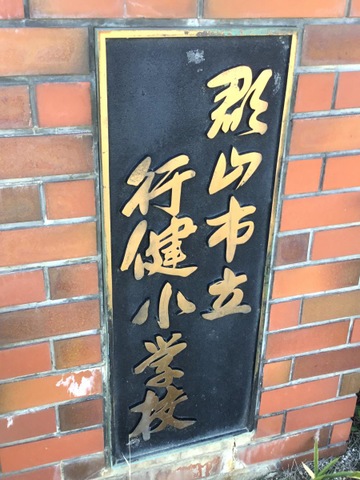 郡山市立
行健小学校